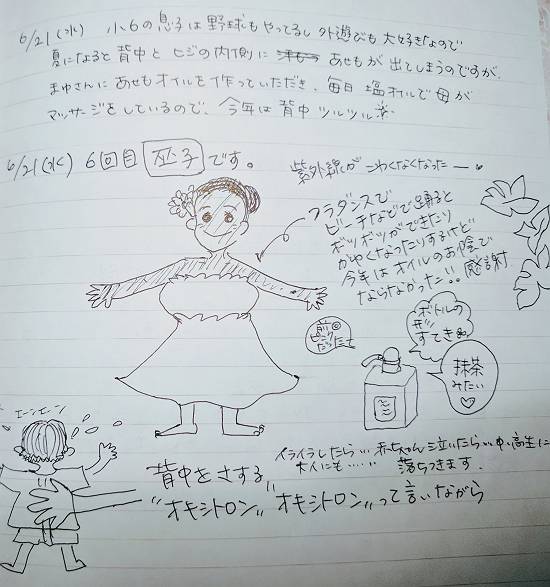 6/21(水) 小6の息子は野球もやってるし外遊びも大好きなので
夏になると背中とヒジの内側に あせもが出てしまうのですが、
まゆさんにあせもオイルを作っていただき、毎日塩オイルで母が
マッサージをしているので、今年は背中ツルツル
6/21(水) 6回目 巫子です。
紫外線がこわくなくなったー
フラダンスで
ビーチなどで踊ると
ボツボツができたり
かゆくなったりするけど
今年はオイルのお陰で
ならなかった!! 感謝
ボトルの
形
すてき
抹茶
みたい
エーンエーン
背中をさする
イライラしたら… 赤ちゃん泣いたら… 中・高生に
大人にも…… 落ちつきます。
"オキシトロン" "オキシトロン" って言いながら